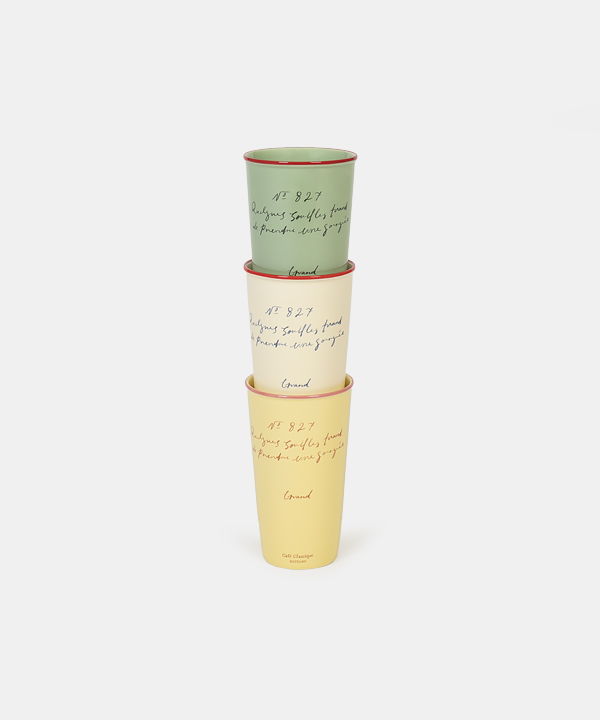 Nº 827
Quelques souffles
de prendre une gorgée
Grand
Nº 827
Quelques souffles
de prendre une gorgée
Grand
Nº 827
Quelques souffles
de prendre une gorgée
Grand
Café Classique